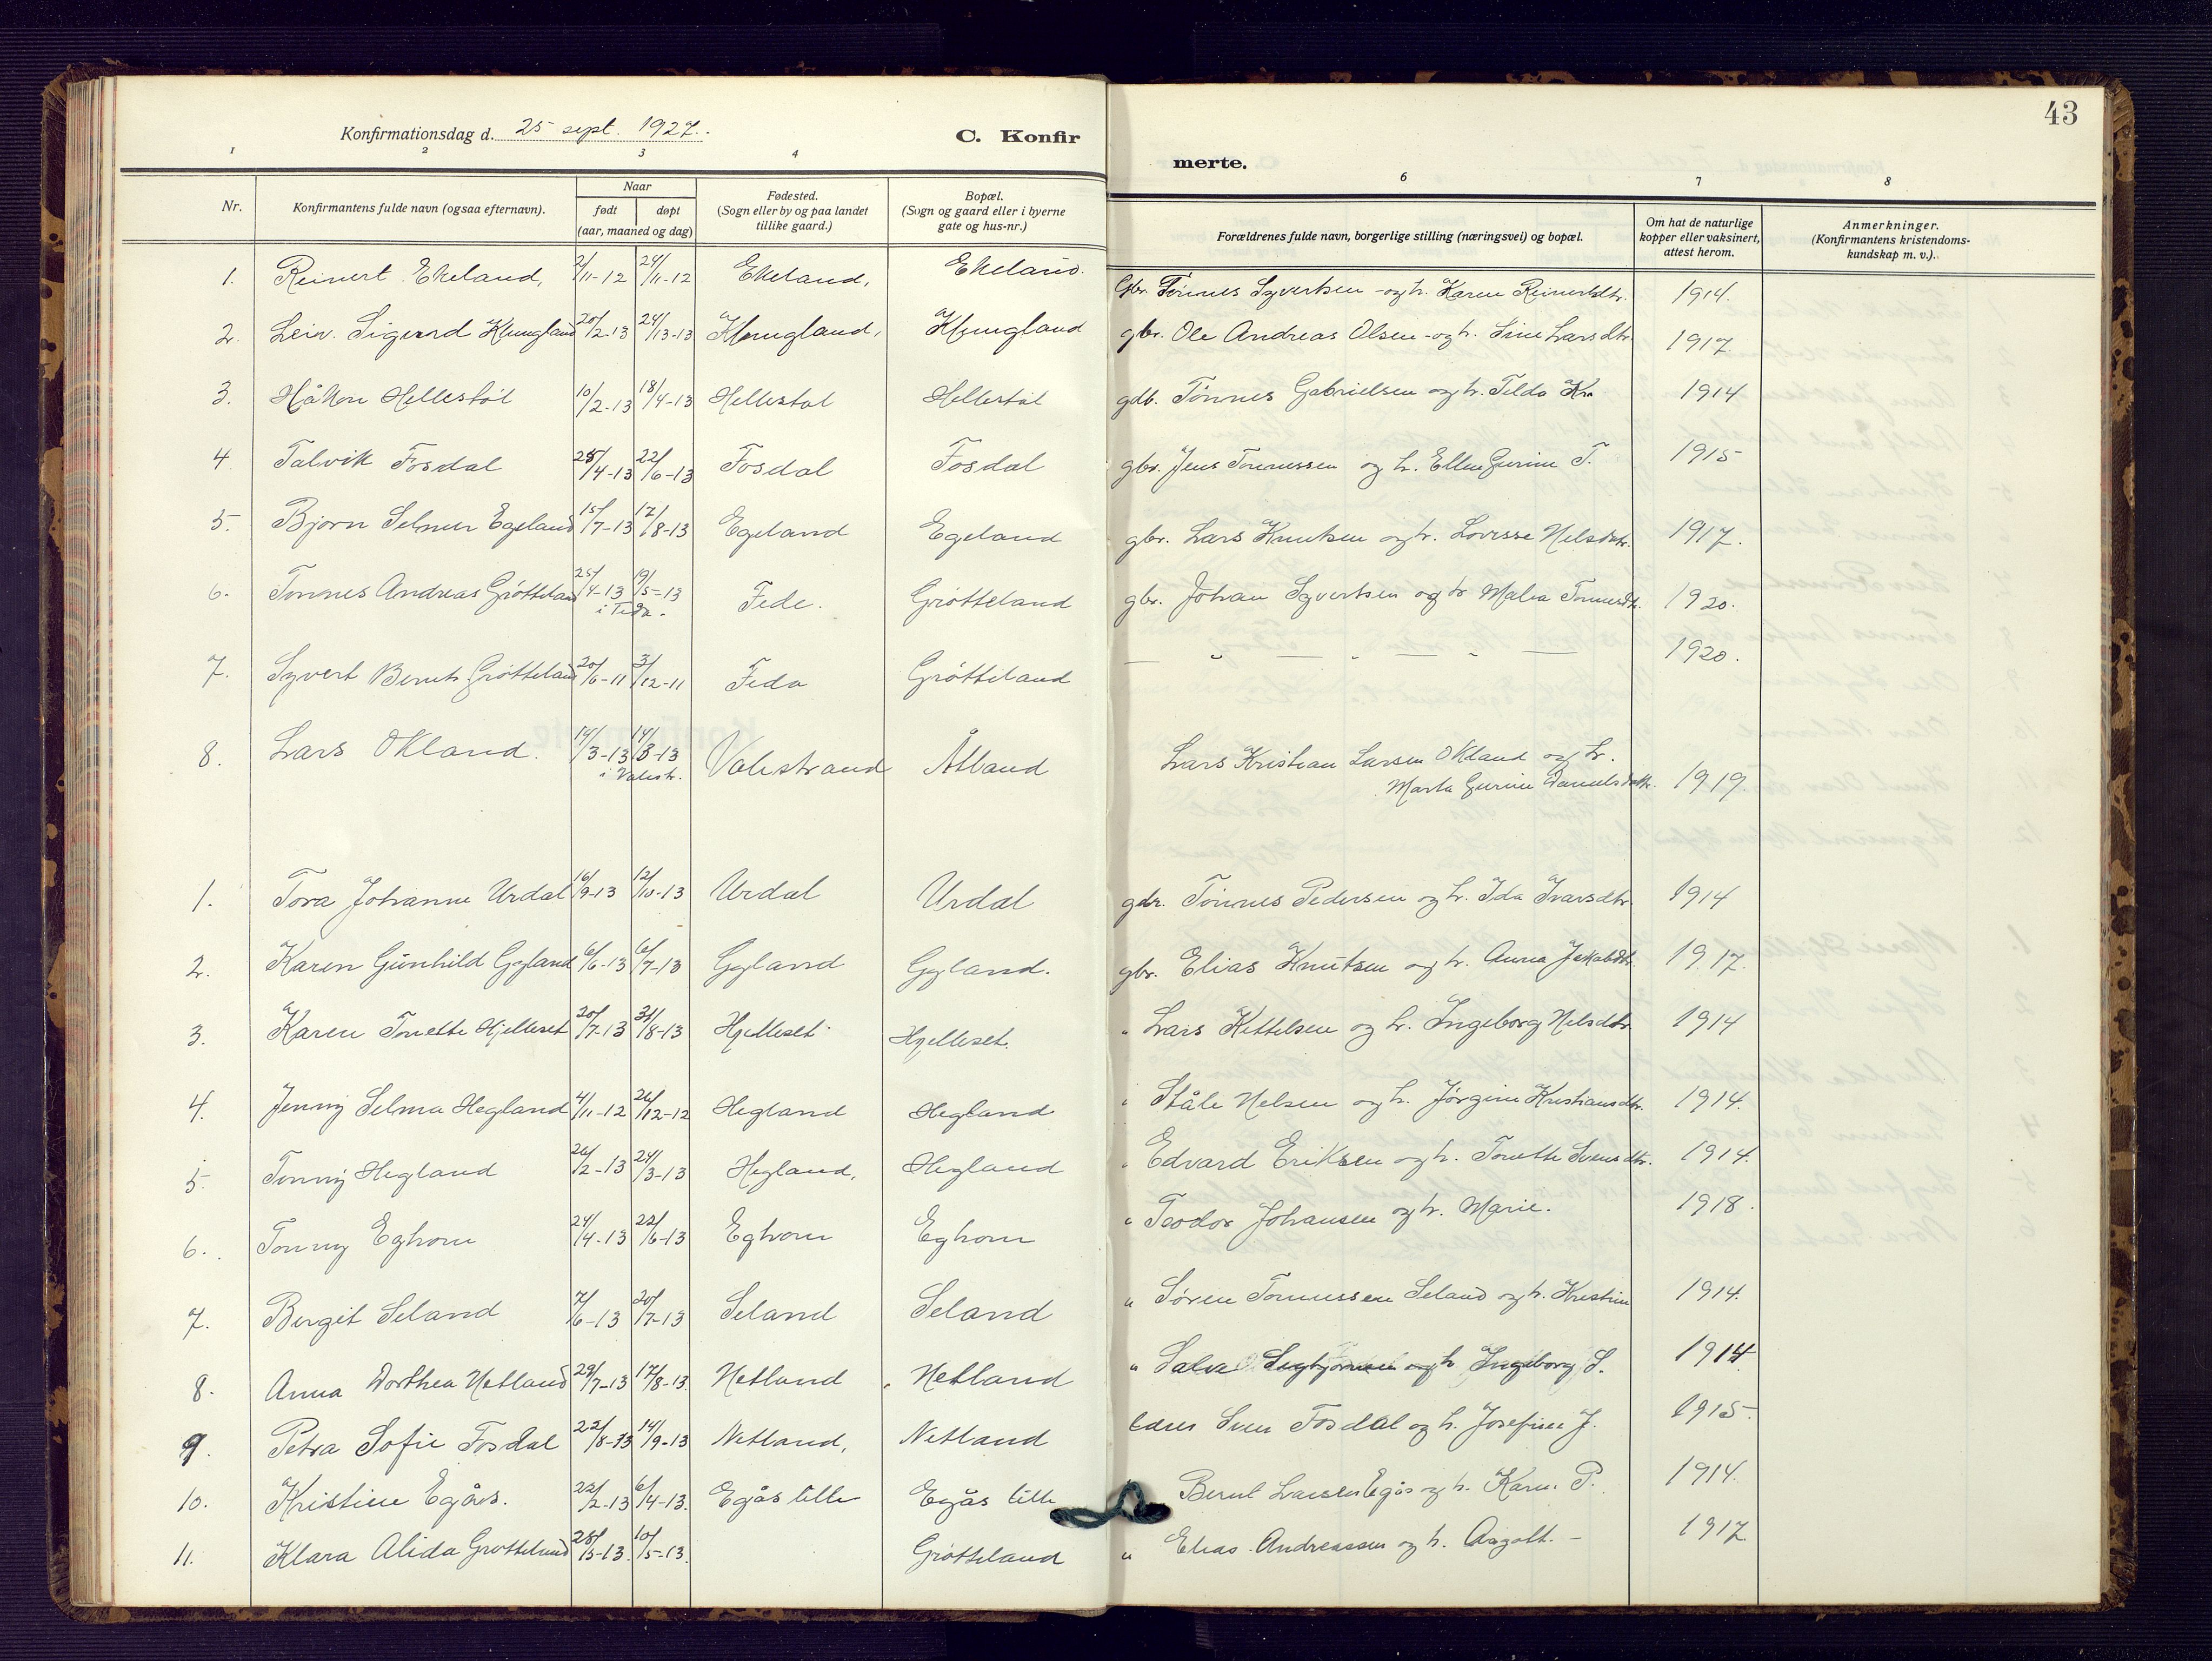 43
Konfirmationsdag d. 25 sept. 1927.
C. Konfir
merte.
1 2 3 4 6 7 8
Nr.
Konfirmantens fulde navn (ogsaa efternavn).
Naar
født døpt
(aar, maaned og dag)
Fødested.
(Sogn eller by og paa landet
tillike gaard.)
Bopæl.
(Sogn og gaard eller i byerne
gate og hus-nr.)
Forældrenes fulde navn, borgerlige stilling (næringsvei) og bopæl.
Om hat de naturlige
kopper eller vaksinert,
attest herom.
Anmerkninger.
(Konfirmantens kristendoms-
kundskap m. v.).
1. Reinert Ekeland, 2/11-12 24/11-12 Ekeland, Ekeland. Gbr. Tønnes Syvertsen og h. Karen Reinertsdtr. 1914.
2. Leiv Sigurd Klungland 20/2-13 24/13-13 Klungland, Klungland gbr. Ole Andreas Olsen og h. Sine Larsdtr. 1917
3. Håkon Hellestøl 10/2-13 18/4-13 Hellestøl Hellestøl gdb. Tønnes Gabrielsen og h. Tilda Kr 1914
4 Talvik Fosdal 25/4-13 22/6-13 Fosdal Fosdal gbr. Jens Tønnessen og h. Ellen Gurine T. 1915
5. Bjørn Selmer Egeland 15/7-13 17/8-13 Egeland Egeland gbr. Lars Knutsen og h. Lovisse Nelsdtr. 1917.
6. Tønnes Andreas Grøtteland 25/4-13 19/5-13 Fede. Grøtteland gbr. Johan Syvertsen og h Malea Tønnesdtr. 1920.
i Feda.
7. Syvert Bernt Grøtteland 20/6-11 3/12-11 Feda Grøtteland — „ — „ — „ — 1920.
8. Lars Økland. 14/3-13 14/3-13 Valestrand Åtland Lars Kristian Larsen Økland og h.
i Valestr. Marta Gurine Danielsdatt. 1919.
1. Tora Johanne Urdal 16/9-13 12/10-13 Urdal Urdal gdr. Tønnes Pedersen og h. Ida Ivarsdtr. 1914
2. Karen Gunhild Gyland 6/6-13 6/7-13 Gyland Gyland. gbr. Elias Knutsen og h. Anna Jakobdtr. 1917.
3. Karen Tonette Hjelleset 20/7-13 31/8-13 Hjelleset Hjelleset. „ Lars Kettelsen og h. Ingeborg Nelsdtr. 1914
4. Jenny Selma Hegland 4/11-12 26/12-12 Hegland Hegland „ Ståle Nelsen og h. Jørgine Kristiansdtr. 1914.
5. Tonny Hegland 26/2-13 24/3-13 Hegland, Hegland „ Edvard Eriksen og h. Tonette Svensdtr. 1914.
6. Tonny Eghom 24/4-13 22/6-13 Eghom Eghom „ Teodor Johansen og h. Marie. 1918.
7. Bergit Seland 7/6-13 20/7-13 Seland Seland „ Søren Tønnessen Seland og h. Kristine 1914.
8. Anna Dorthea Netland 29/7-13 17/8-13. Netland Netland „ Salve Segbjørnsen og h. Ingeborg S. 1914
9. Petra Sofie Fosdal 22/8-13 14/9-13 Netland, Netland lærer Sven Fosdal og h. Josefine J. 1915.
10. Kristine Egås. 22/2-13 6/4-13. Egås lille Egås lille Bernt Larsen Egås og h. Karen P. 1914.
11. Klara Alida Grøtteland 28/3-13. 10/5-13. Grøtteland „ Elias Andreassen og h. Asgolt. - 1917